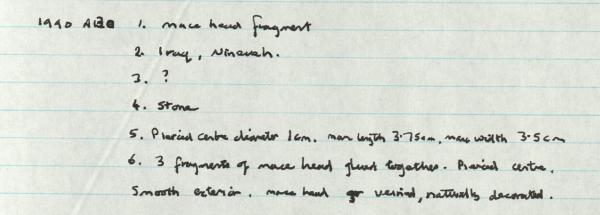 1990 1. mace head fragment
2. Iraq, Ninevah.
3. ?
4. Stone
5. Pierced centre diameter 1cm. max length 3.75cm, max width 3.5cm
6. 3 fragments of mace head glued together. Pierced centre.
Smooth exterior. mace head veined, naturally decorated.